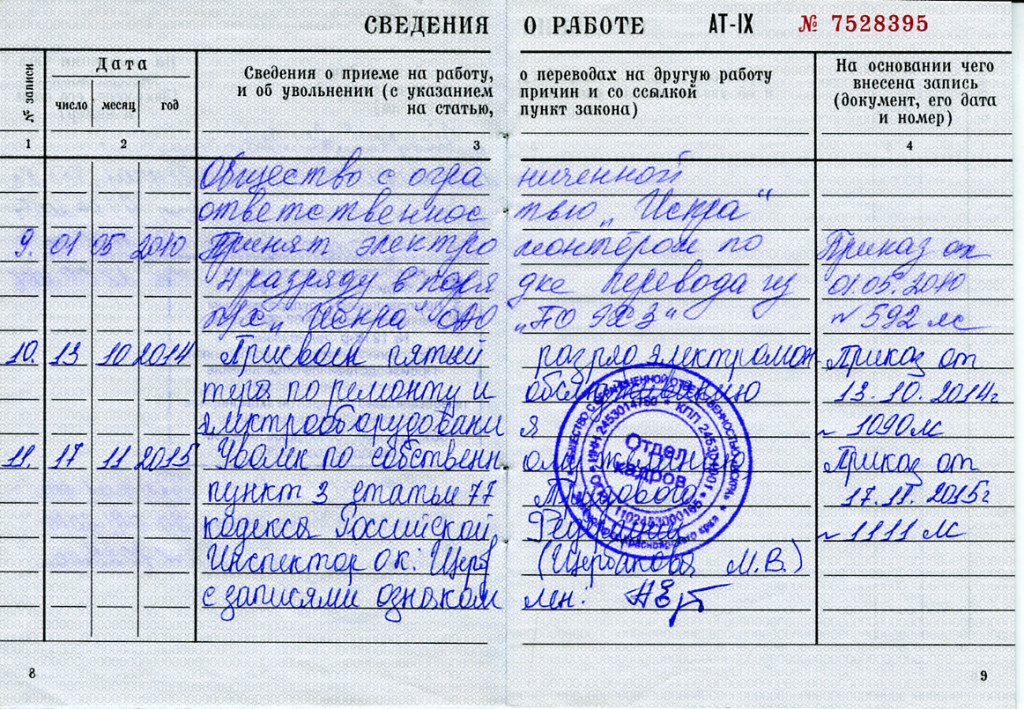 СВЕДЕНИЯ О РАБОТЕ АТ-IX № 7528395
№ записи
Дата
число месяц год
Сведения о приеме на работу, о переводах на другую работу
и об увольнении (с указанием причин и со ссылкой
на статью, пункт закона)
На основании чего
внесена запись
(документ, его дата
и номер)
1 2 3 4
Общество с ограниченной
ответственностью „Искра“
9. 01 05 2010 Принят электромонтёром по Приказ от
4 разряду в порядке перевода из 01.05.2010
„Искра“ ООО „ПО ЭХЗ“ № 592 лс
10. 13 10 2014 Присвоен пятый разряд электромон Приказ от
тера по ремонту и обслуживанию 13.10.2014г
электрооборудования 1090лс
11. 17 11 2015 Уволен по собственному желанию Приказ от
пункт 3 статьи 77 Трудового 17.11.2015г
кодекса Российской Федерации 1111 лс
Инспектор ОК: (Щербакова М.В.)
с записями ознакомлен:
Отдел
кадров
ИНН 2453014760 КПП 245301001
8 9